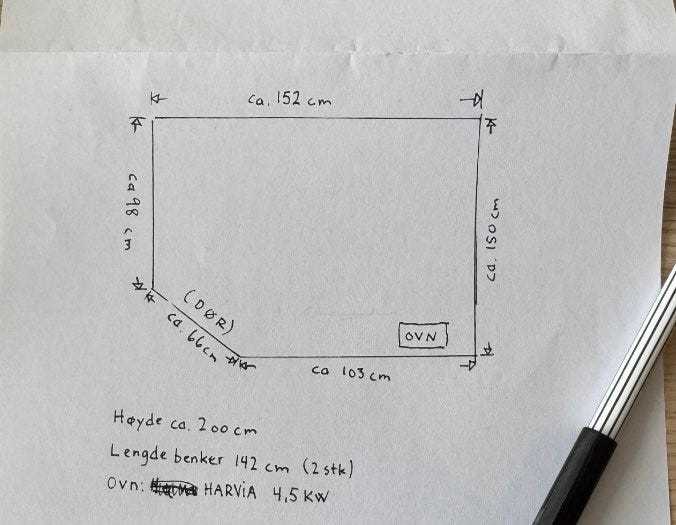 ca. 152 cm
ca 98 cm
ca. 150 cm
(DØR)
ca. 66 cm
OVN
ca 103 cm
Høyde ca. 200 cm
Lengde benker 142 cm (2 stk)
Ovn: HARViA 4,5 KW